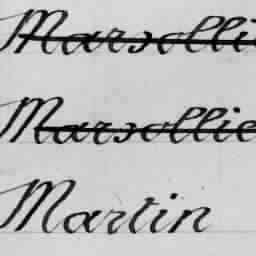 Marsolli
Marsollie
Martin